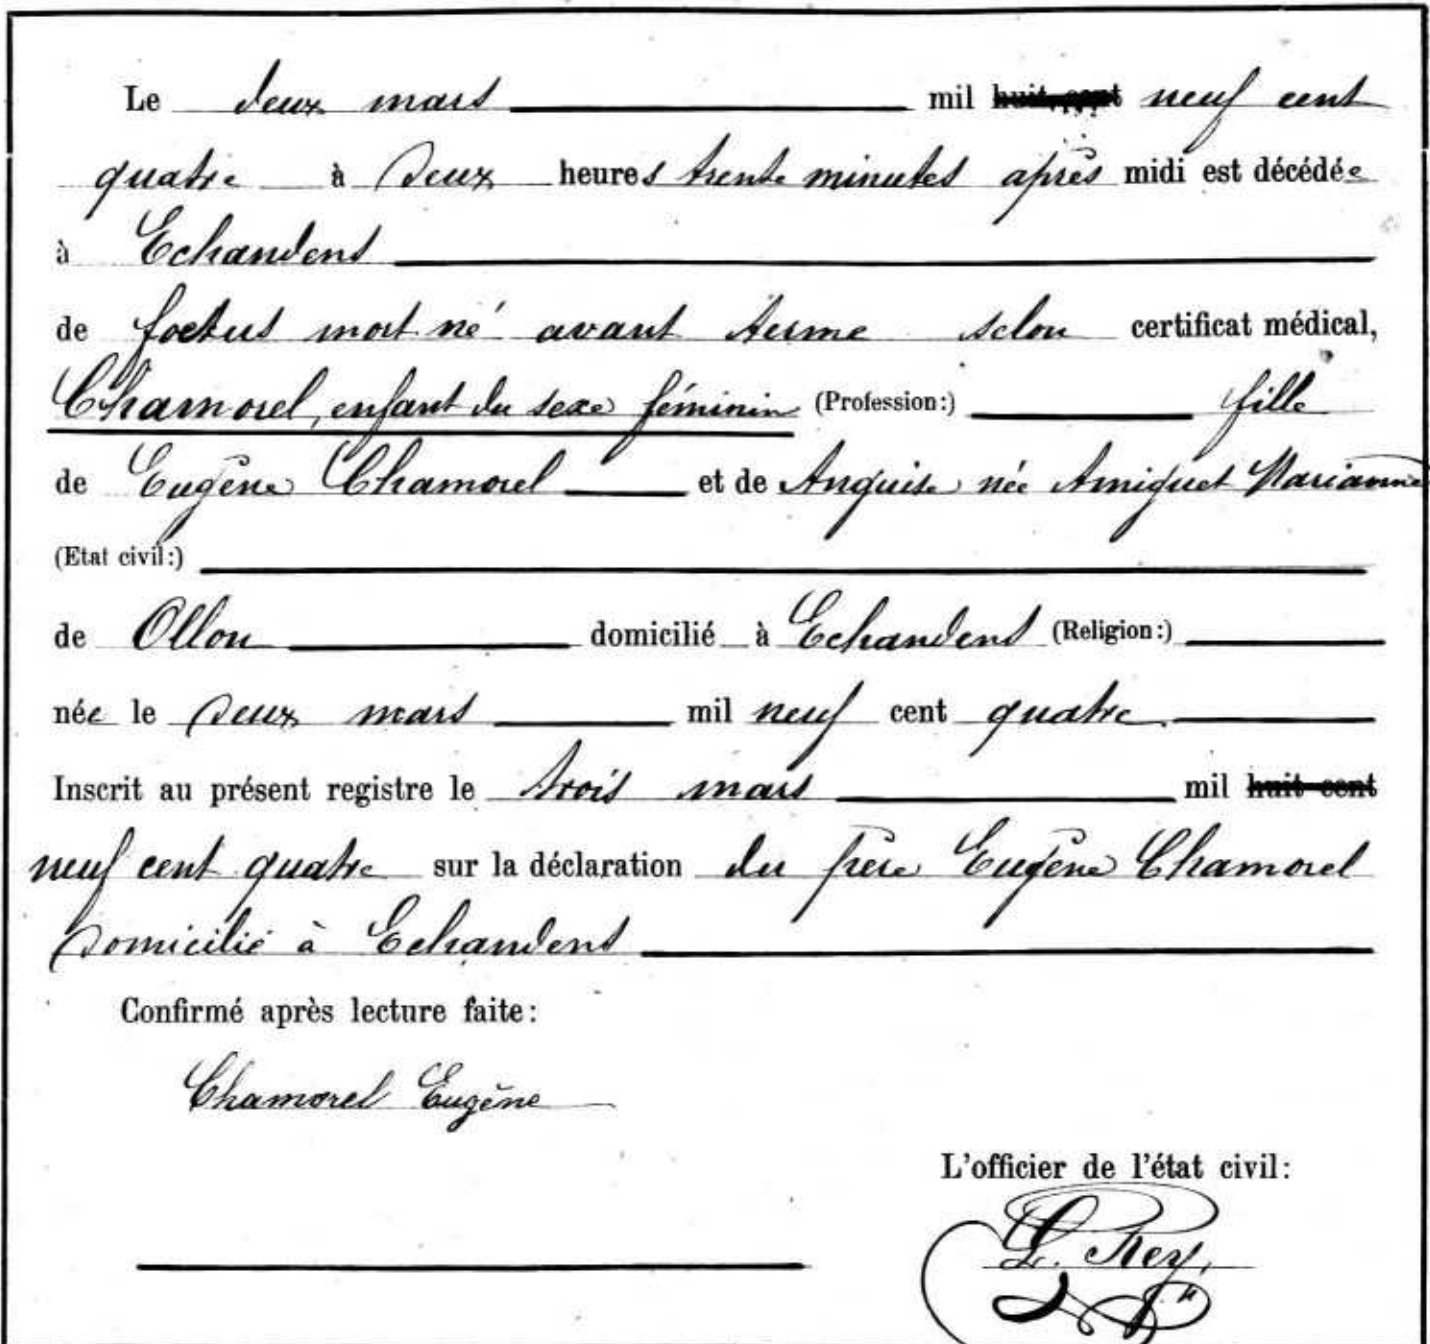 Le deux mars mil huit cent neuf cent
quatre à deux heures trente minutes après midi est décédée
à Echandens
de foetus mort né avant terme selon certificat médical,
Chamorel, enfant du sexe féminin (Profession:) fille
de Eugène Chamorel et de Anguise née Amiguet Marianne
(Etat civil:)
de Ollon domicilié à Echandens (Religion:)
née le deux mars mil neuf cent quatre
Inscrit au présent registre le trois mars mil huit cent
neuf cent quatre sur la déclaration du père Eugène Chamorel
domicilié à Echandens
Confirmé après lecture faite:
Chamorel Eugène
L'officier de l'état civil:
L. Rey.